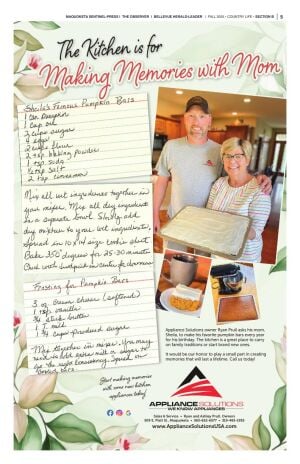 MAQUOKETA SENTINEL-PRESS | THE OBSERVER | BELLEVUE HERALD-LEADER | FALL 2025 • COUNTRY LIFE • SECTION B | 5
The Kitchen is for
Making Memories with Mom
Sheila's Famous Pumpkin Bars
1 can Pumpkin
1 cup oil
2 cups sugar
4 eggs
2 cups flour
2 tsp baking powder
1 tsp soda
salt
2 tsp cinnamon
Mix all wet ingredients together in
your mixer. Mix all dry ingredients
in a separate bowl. Slowly add
dry mixture to your wet ingredients.
Spread in 10 x 14 size cookie sheet
Bake 350 degrees for 25-30 minutes
Check with toothpick in center for doneness
Frosting for Pumpkin Bars
3 oz cream cheese (softened)
1 tsp vanilla
3/4 stick butter
1 T. milk
powdered sugar
Mix together in mixer. You may
need to add extra milk or sugar to
get the right consistency. Spread on
cooled bars.
Start making memories
with some new kitchen
appliances today!
Appliance Solutions owner Ryan Prull asks his mom,
Sheila, to make his favorite pumpkin bars every year
for his birthday. The kitchen is a great place to carry
on family traditions or start brand new ones.
It would be our honor to play a small part in creating
memories that will last a lifetime. Call us today!
APPLIANCE SOLUTIONS
WE KNOW APPLIANCES
Sales & Service • Ryan and Ashley Prull, Owners
www.ApplianceSolutionsUSA.com